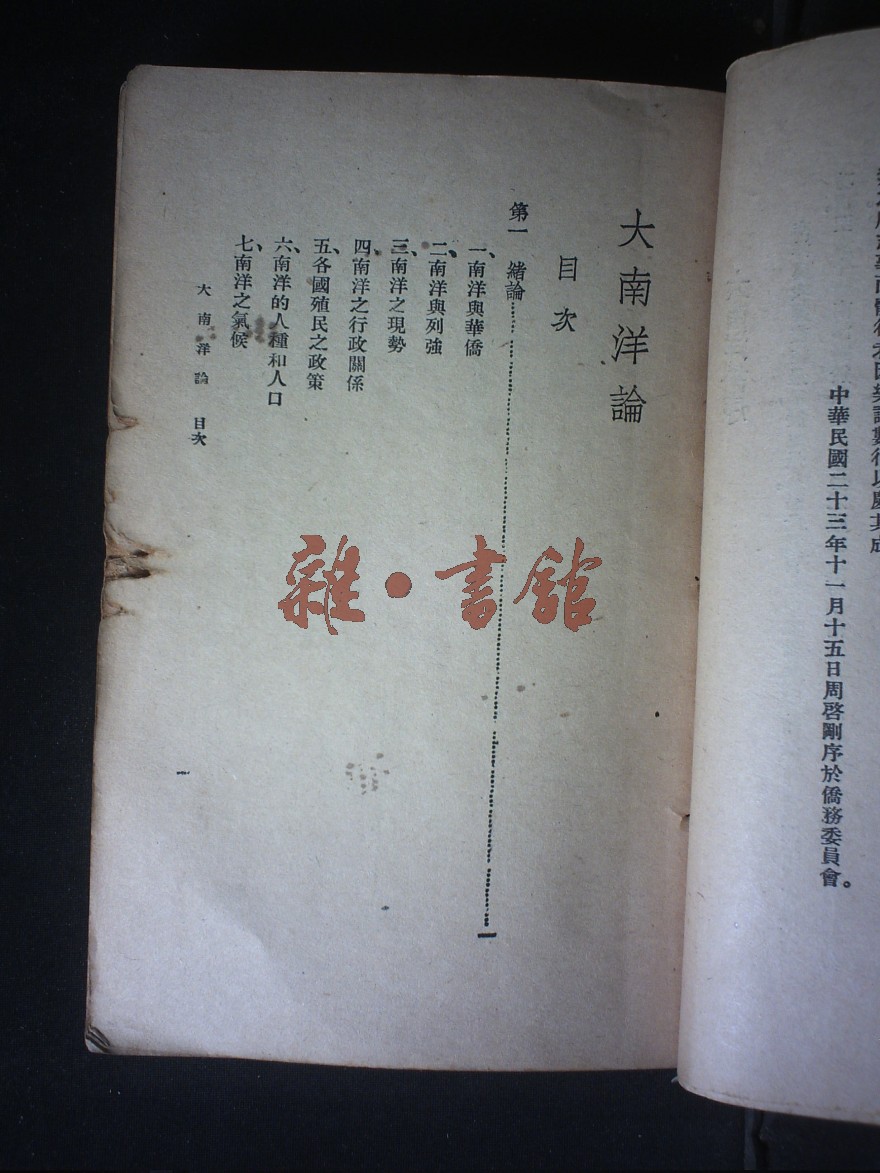 中華民國二十三年十一月十五日周啓剛序於僑務委員會。
大南洋論
目次
第一 緒論……一
一、南洋與華僑
二、南洋與列強
三、南洋之現勢
四、南洋之行政關係
五、各國殖民之政策
六、南洋的人種和人口
七、南洋之氣候
大南洋論 目次
一
雜·書館